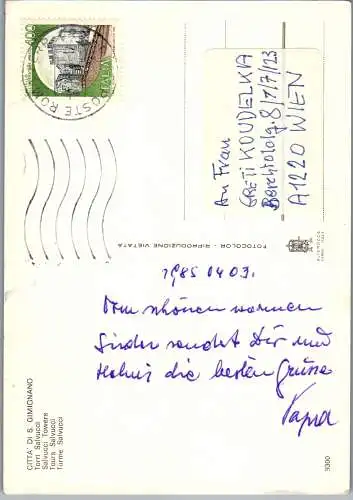 400
ITALIA
POSTE ROMA
An Frau
GRETI KOUDELKA
8/7/7/123
A1220 WIEN
FOTOCOLOR - RIPRODUZIONE VIETATA
1985 04 03.
Vom schönen warmen
Süden sendet Dir und
die besten Grüsse
Papa
CITTA' DI S. GIMIGNANO
Torri Salvucci
Salvucci Towers
Tours Salvucci
Turme Salvucci